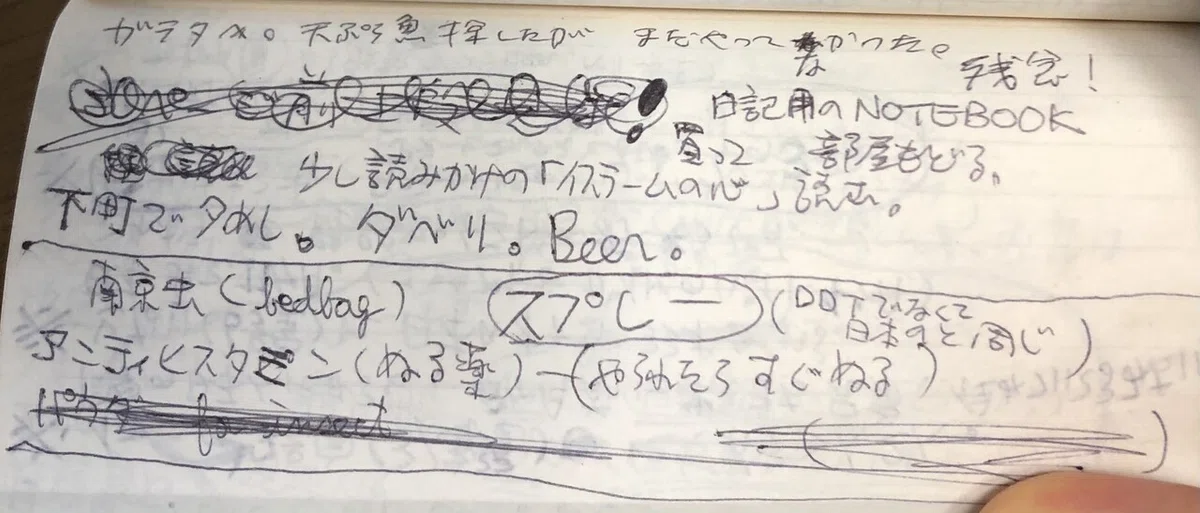 ガラタメ。天ぷら魚探したが まだやってなかった。
残念!
日記用のNOTEBOOK
買って 部屋もどる。
少し読みかけの「イスラームの心」読む。
下町で夕めし。ダベリ。Beer。
南京虫(bedbag) スプレー(DDTでなくて
日本のと同じ)
アンティヒスタミン(ぬる薬)ー(やられたらすぐぬる)
パウダー for insect